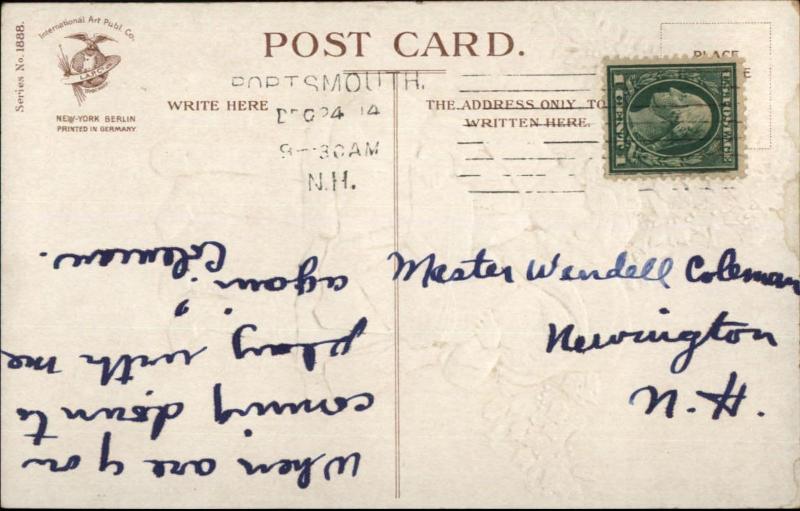 Series No. 1888.
International Art Publ. Co.
NEW-YORK BERLIN
PRINTED IN GERMANY
POST CARD.
WRITE HERE
THE ADDRESS ONLY TO
WRITTEN HERE.
PLACE
PORTSMOUTH,
DEC 24 14
30 AM
N.H.
1 CENT 1
U.S. POSTAGE
Master Wendell Coleman
Newington
N.H.
When are you
coming down to
play with me
again.
Coleman.